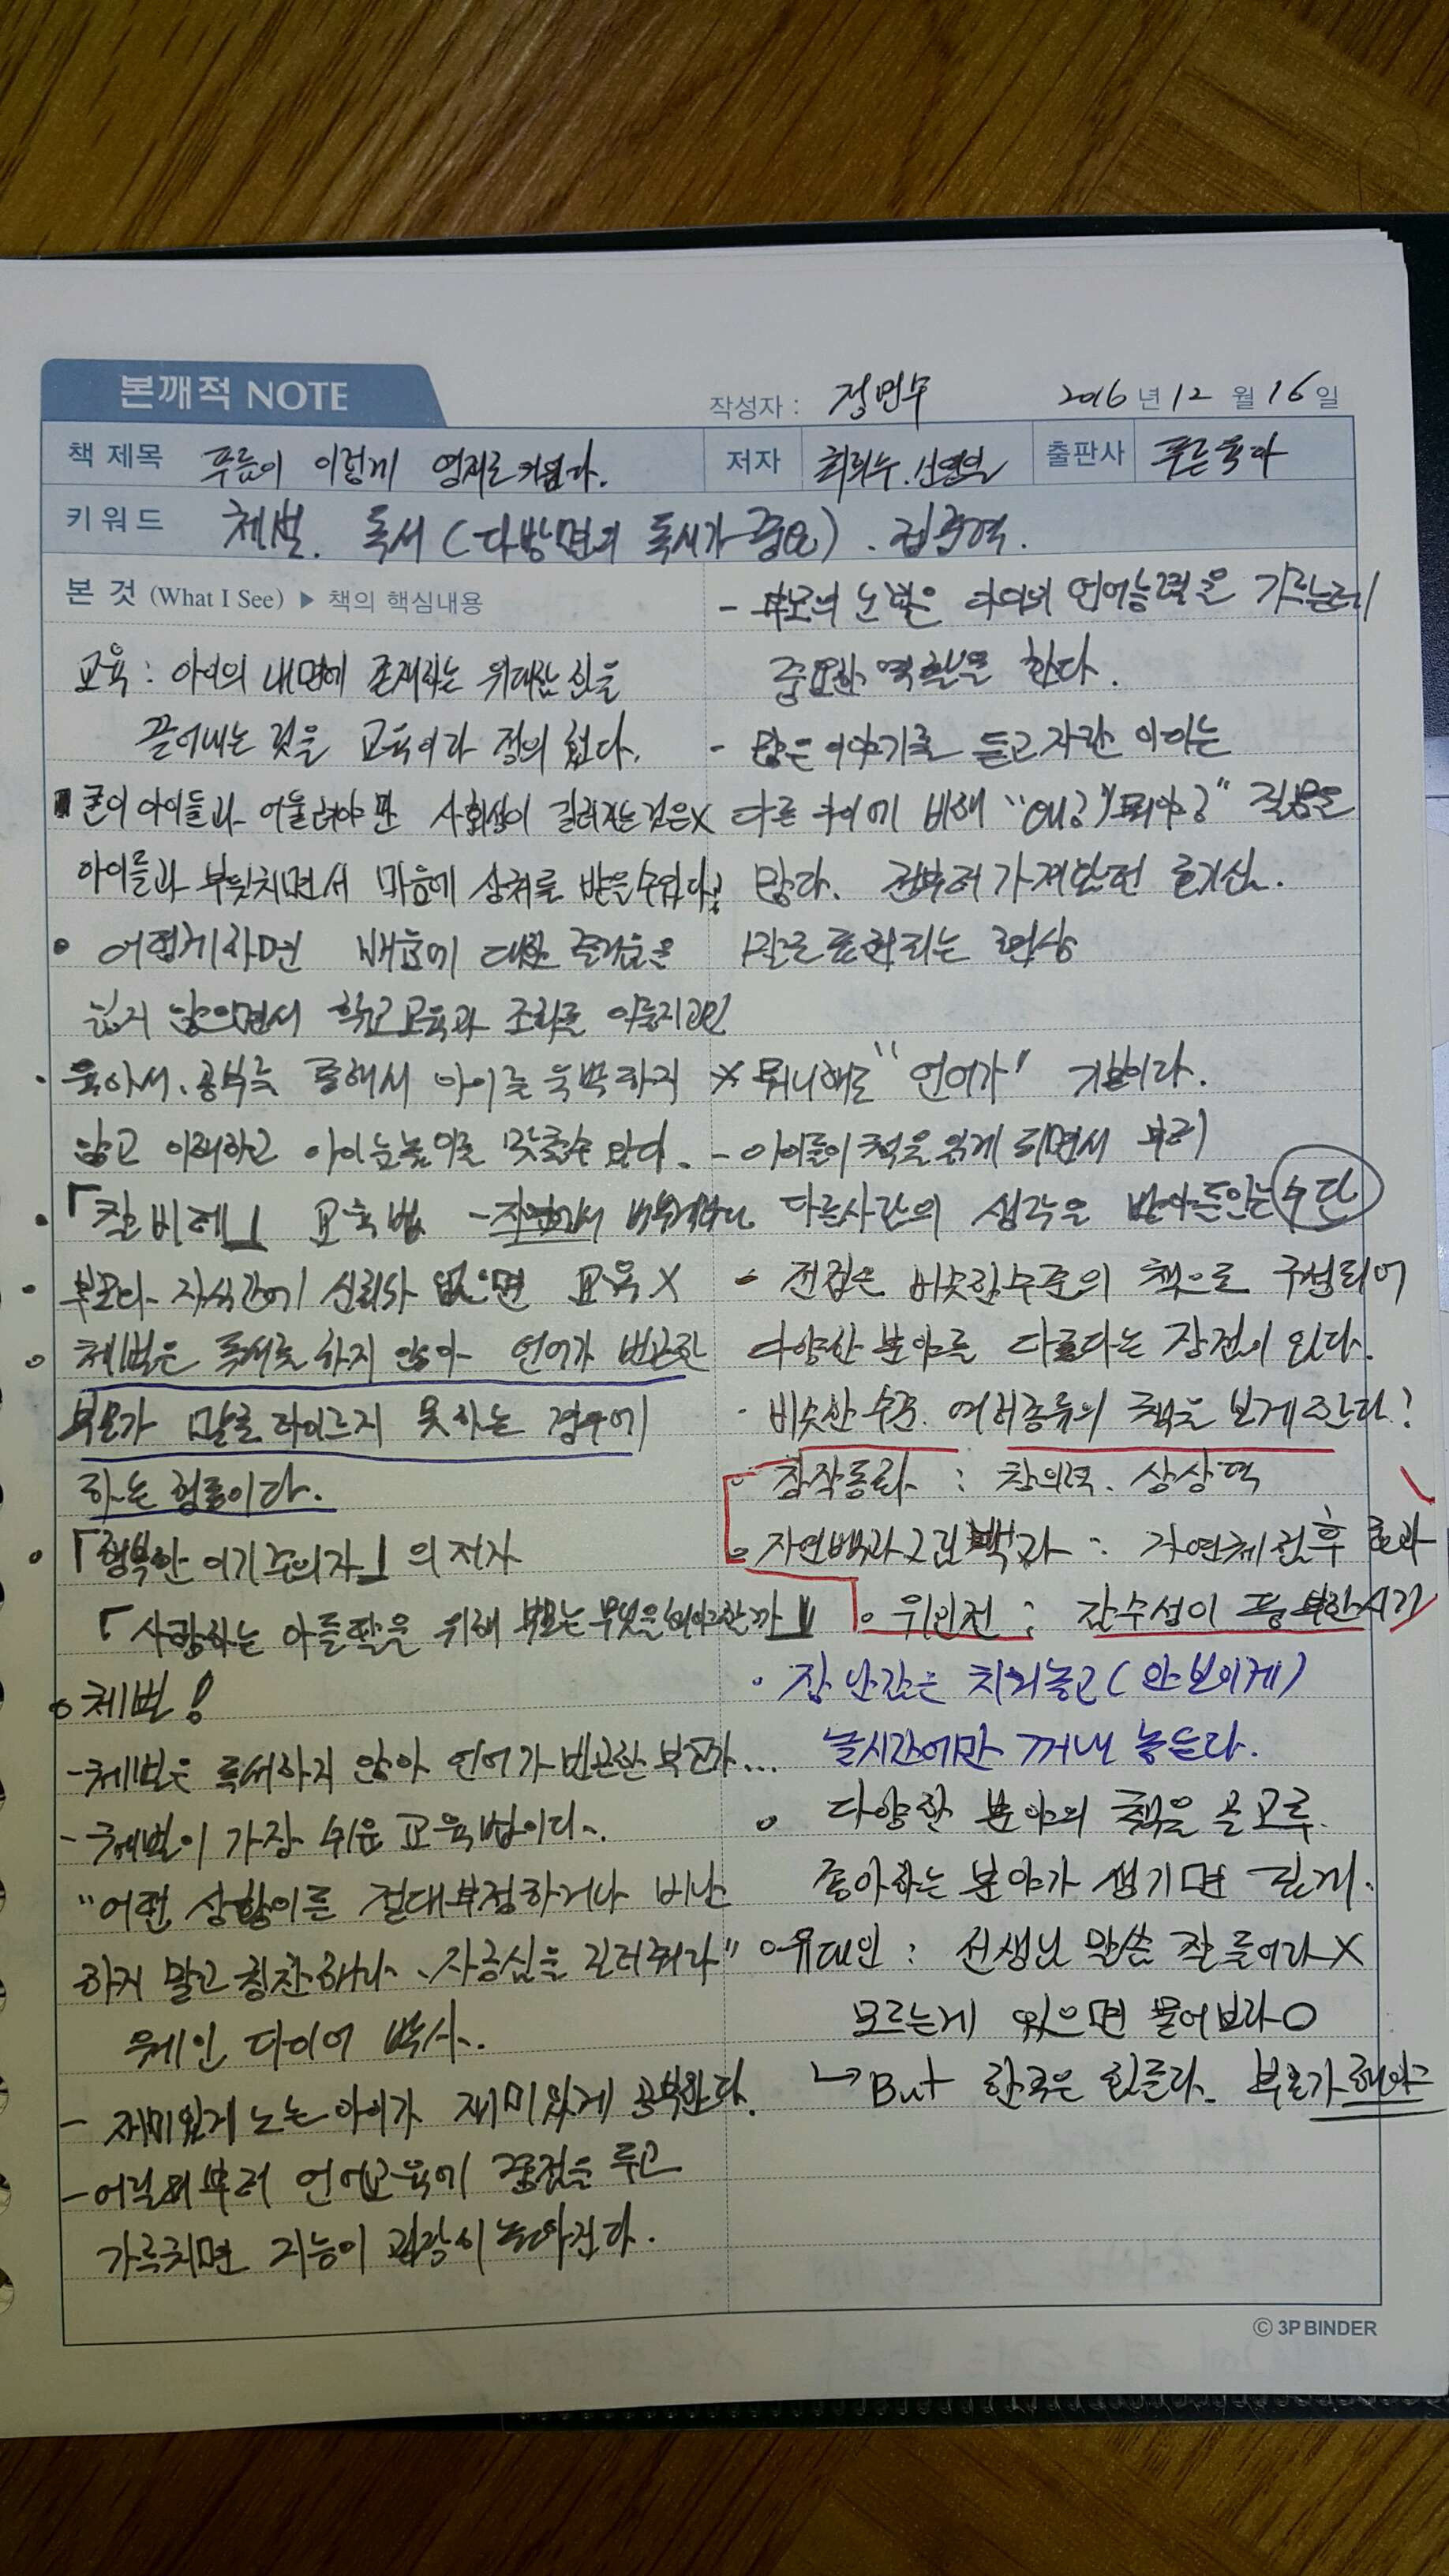 본깨적 NOTE
작성자 : 정민우 2016 년 12 월 16 일
책 제목 푸름이 이렇게 영재로 키웠다.
저자 최희수.신영일
출판사 푸른육아
키워드 체벌. 독서 (다방면의 독서가 중요). 집중력.
본 것 (What I See) ▶ 책의 핵심내용
교육 : 아이의 내면에 존재하는 위대한 힘을
끌어내는 것을 교육이라 정의 했다.
굳이 아이들과 어울려야만 사회성이 길러지는 것은X
아이들과 부딪치면서 마음에 상처를 받을수있다!
• 어떻게하면 배움에 대한 즐거움을
잃지 않으면서 학교교육과 조화를 이룰지고민
• 육아서.공부를 통해서 아이를 윽박하지
않고 이해하고 아이눈높이를 맞출수 있다.
• 「칼비테」 교육법 - 자연에서 배우게하다
• 부모와 자식간에 신뢰가 없으면 교육 X
체벌은 독서를 하지 않아 언어가 빈곤한
부모가 말로 타이르지 못하는 경우에
하는 행동이다.
• 「행복한 이기주의자」의 저자
「사랑하는 아들딸을 위해 부모는 무엇을해야하는가」
체벌!
- 체벌은 독서하지 않아 언어가 빈곤한 부모가...
- 체벌이 가장 쉬운 교육법이다.
"어떤 상황이든 절대부정하거나 비난
하지 말고 칭찬해라. 자긍심을 길러줘라"
웨인 다이어 박사.
- 재미있게 노는 아이가 재미있게 공부한다.
- 어릴때부터 언어교육에 중점을 두고
가르치면 지능이 굉장히 높아진다.
- 부모의 눈빛은 아이의 언어능력을 기르는데
중요한 역할을 한다.
- 많은 이야기를 듣고자란 아이는
다른 아이에 비해 "왜?" "뭐야?" 질문은
많다. 전부터 가져왔던 호기심.
말로 표현되는 현상
X 뭐니해도 "언어가" 기본이다.
- 아이들이 책을 읽게 되면서 부터
다른사람의 생각을 받아들이는 수단
• 전집은 비슷한수준의 책으로 구성되어
다양한 분야를 다룬다는 장점이 있다.
• 비슷한 수준. 여러종류의 책을 보게한다!
창작동화 : 창의력. 상상력
자연백과그림백과 : 자연체험후 효과
위인전 : 감수성이 풍부한시기
• 장난감은 치워놓고 (안보이게)
놀시간에만 꺼내 놓는다.
다양한 분야의 책을 골고루.
좋아하는 분야가 생기면 깊게.
유대인 : 선생님 말씀 잘 들어라 X
모르는게 있으면 물어보라 O
↳ But 한국은 힘들다. 부모가 해야
© 3P BINDER